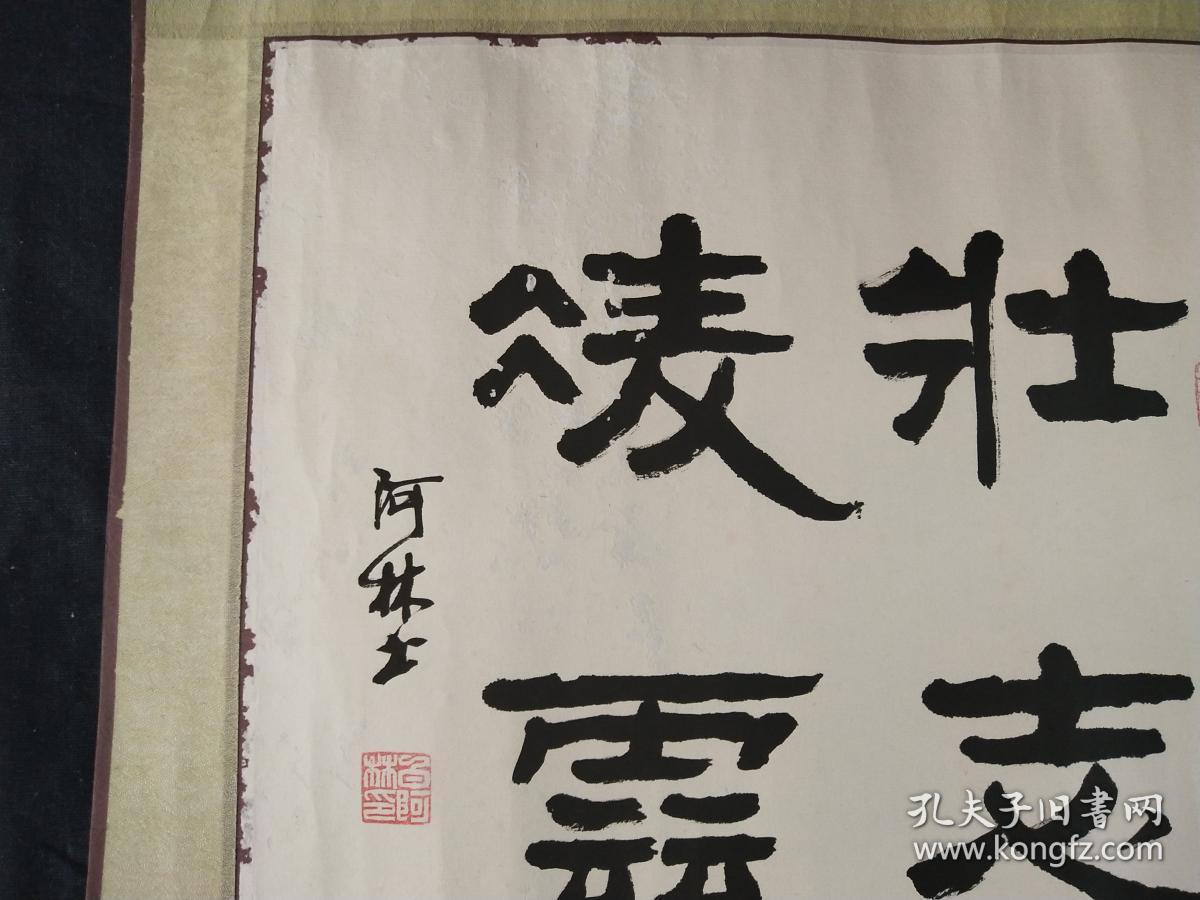 壯志
凌雲
阿林
阿
林印
孔夫子旧書网
www.kongfz.com